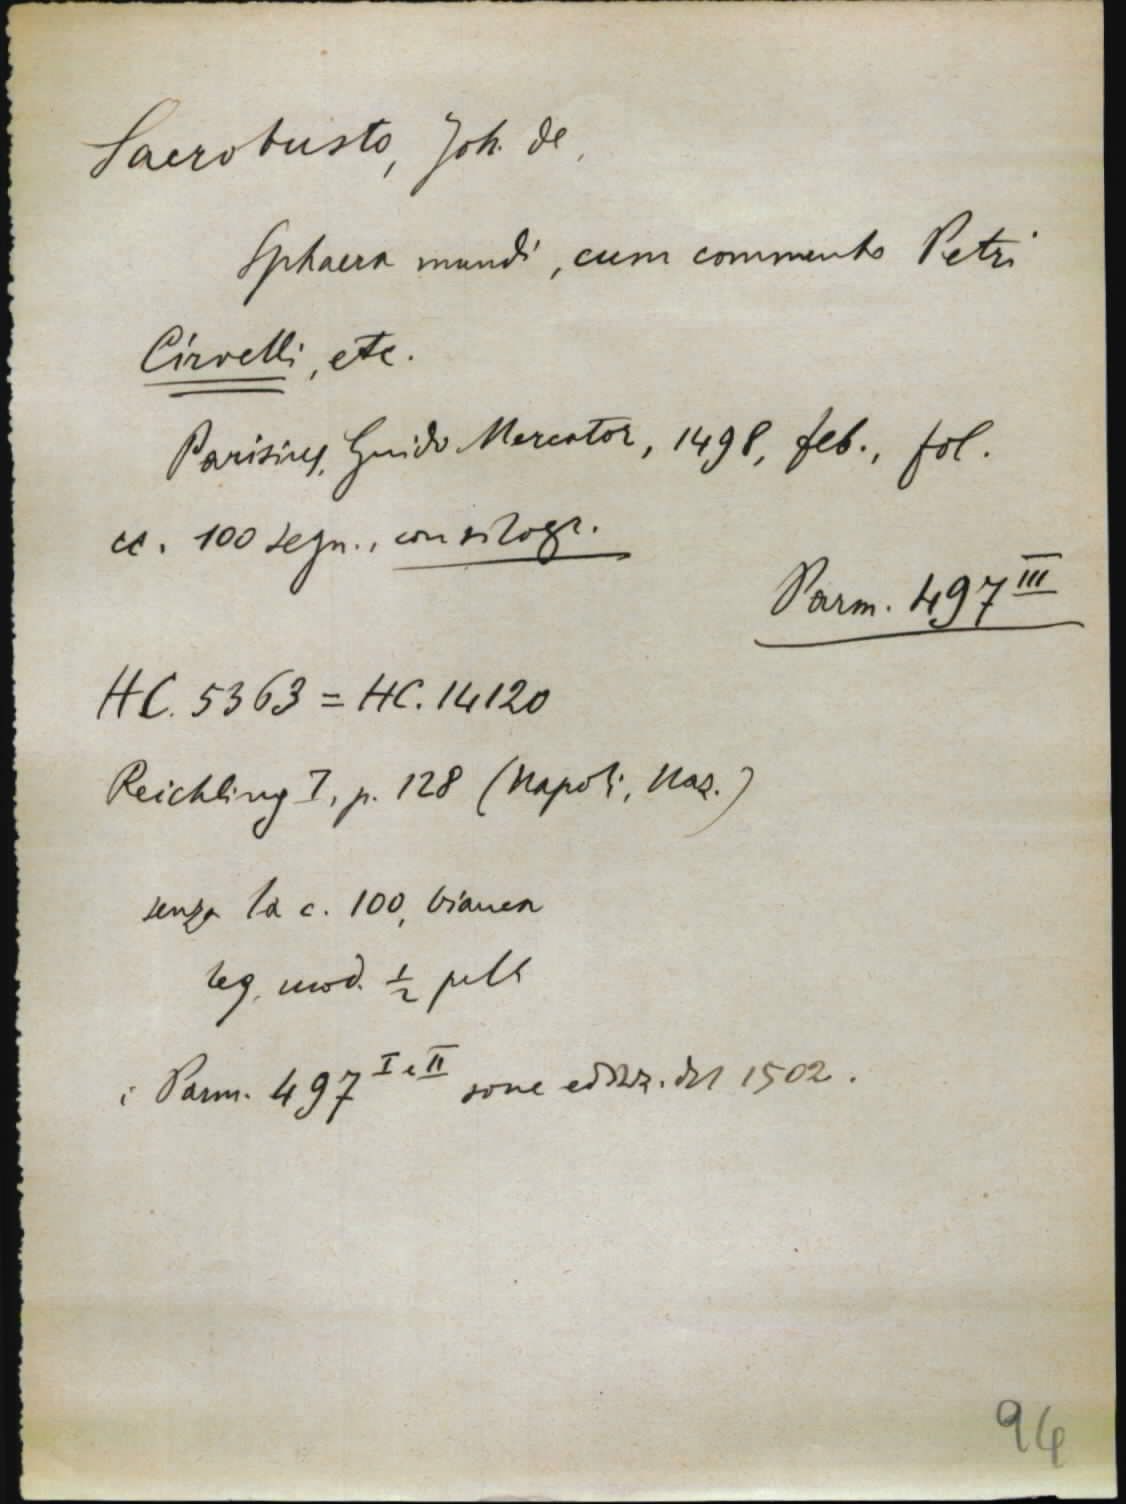 Sacrobusto, Joh. de,
Sphaera mundi, cum commento Petri
Cirvelli, etc.
Parisius, Guido Mercator, 1498, feb., fol.
cc. 100 segn., con silogr.
Parm. 497 III
HC. 5363 = HC. 14120
Reichling I, p. 128 (Napoli, Naz.)
senza la c. 100, bianca
leg. mod. 1/2 pelle
i Parm. 497 I e II sono edizz. del 1502.
94